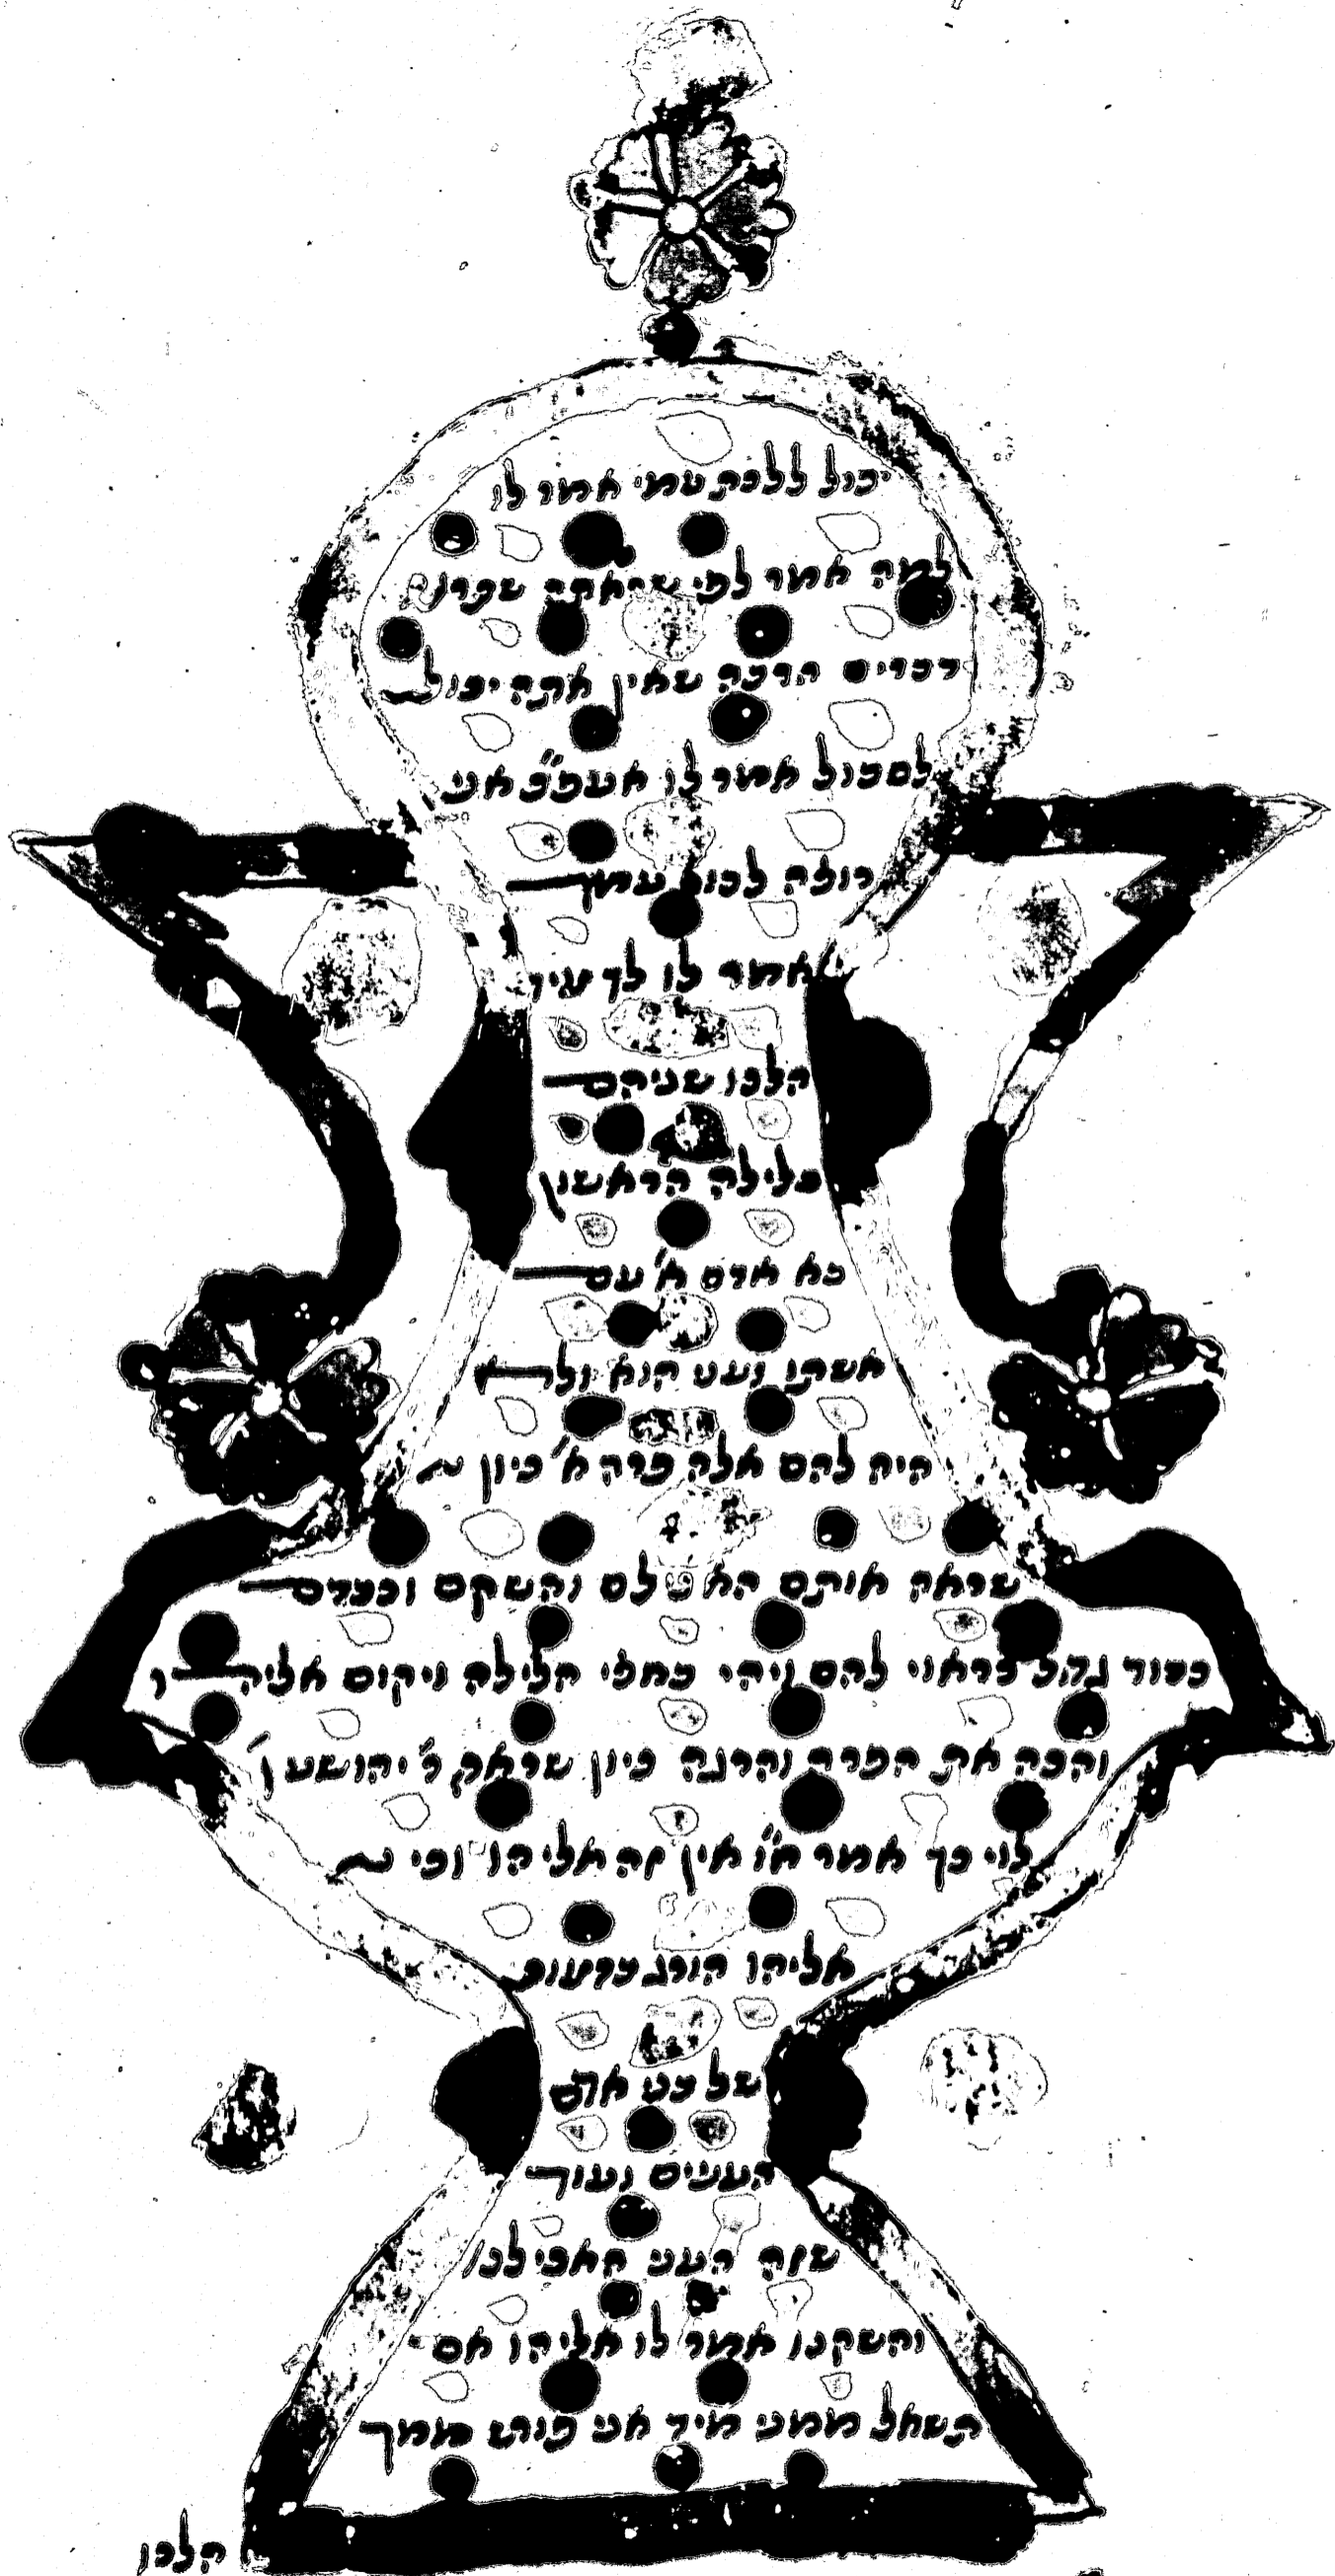 יכול ללכת עמי אמר לו
למה אמר לפי שראתה שפרונ
דברים הרבה שאין אתה יכול
לסבול אמר לו אעפ״כ אני
רוצה לבוא עמך
אמר לו לך עיר
הלכו שניהם
בלילה הראשון
בא אדם א׳ עם
אשתו ועני הוא ולא
היה להם אלה פרה א׳ כיון
שראה אותם האכילם והשקם וכבדם
כבוד גדול כראוי להם ויהי בחצי הלילה ויקום אליהו
והכה את הפרה והרגה כיון שראה ר׳ יהושע ן׳
לוי כך אמר א״ו אין זה אליהו וכי
אליהו הורג פרעות
של בני אדם
העניים ועוד
שזה העני האכילנו
והשקנו אמר לו אליהו אם
תשאל ממני מיד אני פורש ממך
הלכו